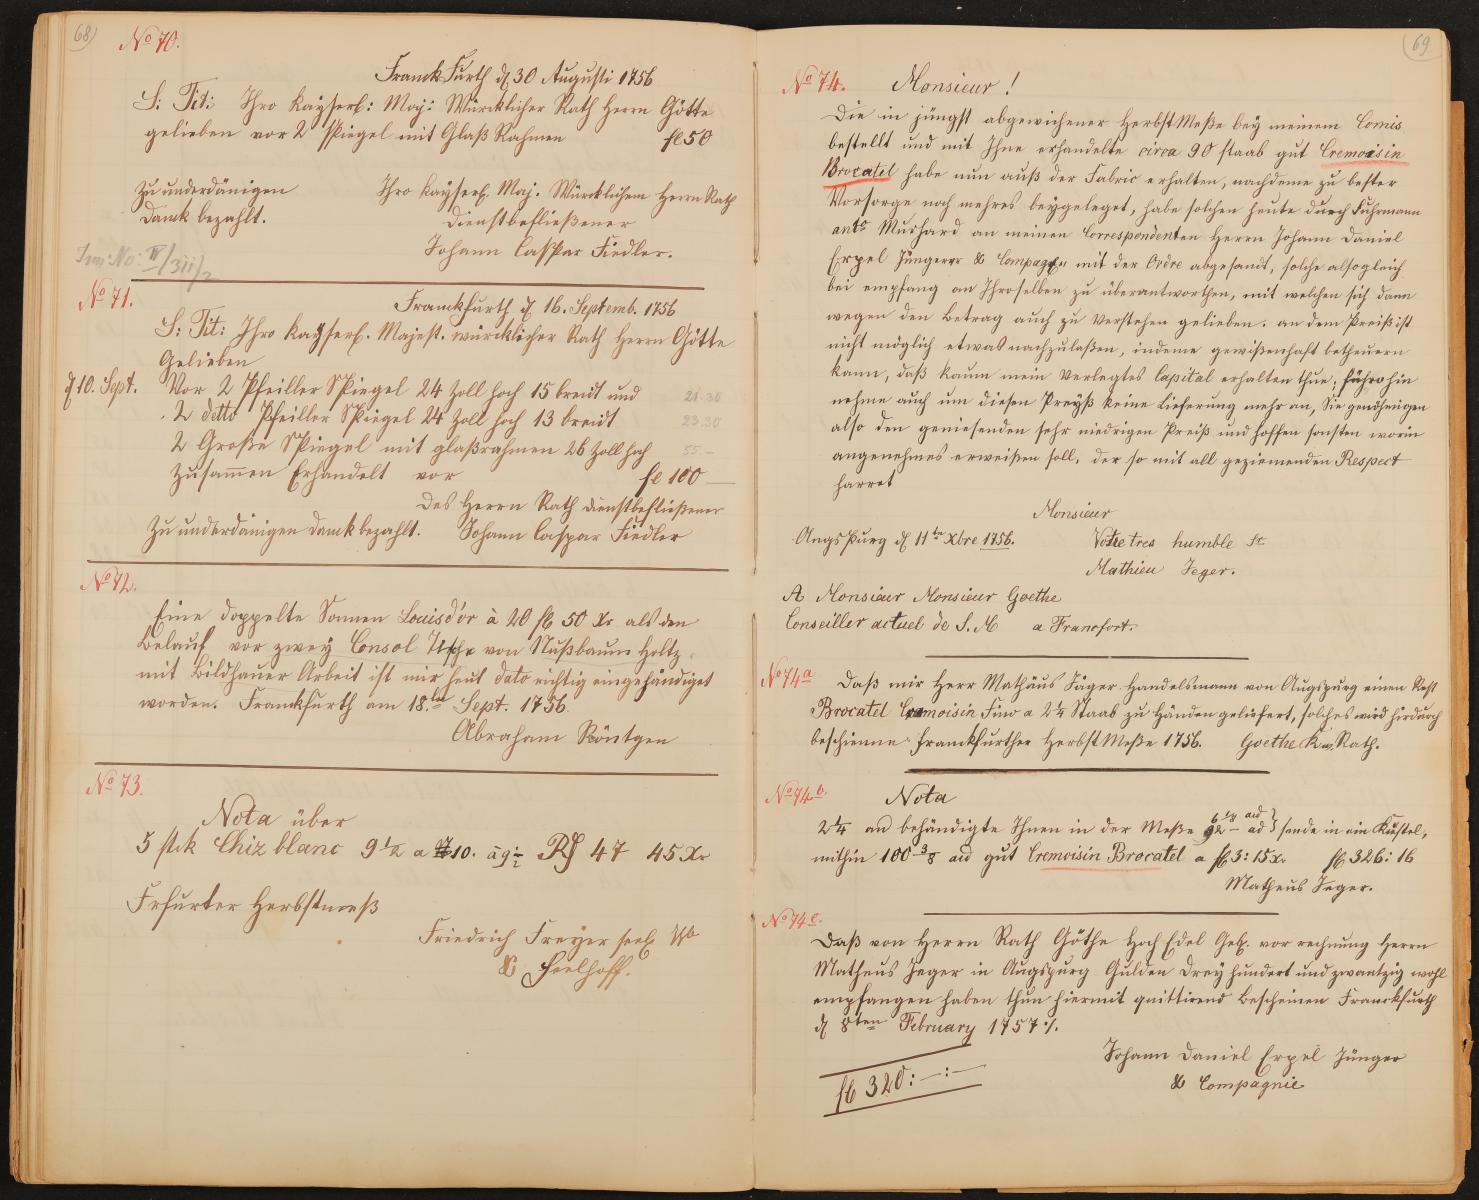 68)
No 70.
Franckfurth d 30 Augusti 1756
S: Tit: Ihro Kayserl: Maj: Würcklicher Rath Herrn Götte
gelieben vor 2 Spiegel mit Glaß Rahmen fl 50
Zu underdänigen Ihro Kayserl. Maj. Würcklichem Herrn Rath
Danck bezahlt. dienstbefließener
Johann Caspar Fiedler.
Inv: No: IV/311/2
No 71.
Franckfurth d 16. Septemb. 1756
S: Tit: Ihro Kayserl. Majest. würcklicher Rath Herrn Götte
Gelieben
d 10. Sept. Vor 2 Pfeiller Spiegel 24 Zoll hoch 15 breidt und 21.30
2 detto Pfeiller Spiegel 24 Zoll hoch 13 breidt 23.30
2 Große Spiegel mit glaßrahmen 26 Zoll hoch 55.–
Zusamen Erhandelt vor fl 100 —
Des Herrn Rath dienstbefließener
Zu underdänigen Danck bezahlt. Johann Caspar Fiedler
No 72.
Eine doppelte Sonnen Louisd'or à 20 fl 50 Xr als den
Belauf vor zwey Consol Tische von Nußbaum Holtz
mit Bildhauer Arbeit ist mir heut dato richtig eingehändiget
worden. Franckfurth am 18. ten Sept. 1756
Abraham Röntgen
No 73.
Nota über
5 stck Chiz blanc 9 1/2 a 10. à 9 1/2 Rf 47 45 Xr
Erfurter Herbstmeß
Friedrich Freyer seel.
& Seelhoff.
69
No 74. Monsieur!
Die in jüngst abgewichener HerbstMeße bey meinem Comis
bestellt und mit Ihne erhandelte circa 90 staab gut Cremoisin
Brocatel habe nun auß der Fabric erhalten, nachdeme zu bester
Vorsorge noch mehres beygeleget, habe solchen heute durch Fuhrmann
anto Muihard an meinen Correspondenten Herrn Johann Daniel
Erpel Jüngerer & Compag. mit der Ordre abgesandt, solche alsogleich
bei empfang an Ihroselben zu überantworthen, mit welchen sich dann
wegen den Betrag auch zu verstehen gelieben. an dem Preiß ist
nicht möglich etwas nachzulaßen, indeme gewißenhaft betheuern
kann, daß kaum mein verlegtes Capital erhalten thue; führohin
nehme auch um diesen Preyß keine Lieferung mehr an, Sie genöhrigen
also den geniesenden sehr niedrigen Preiß und hoffen sonsten worin
angenehmes erweißen soll. der so mit all geziemenden Respect
harret
Monsieur
Augspurg d 11ten Xbre 1756. Votre tres humble &c
Mathieu Jeger.
A Monsieur Monsieur Goethe
Conseiller actuel de S. M a Francfort.
No 74 a Daß mir Herr Mathäus Jäger Handelsmann von Augspurg einen Rest
Brocatel Cremoisin fino a 2 1/4 Staab zu Händen geliefert, solches wird hirdurch
beschienne Franckfurther HerbstMeße 1756. Goethe K w. Rath.
No 74 b. Nota
2 1/4 an behändigte Ihnen in der Meße sende in ein Küstel,
mithin 100 3/8 au gut Cremoisin Brocatel a fl 3:15 Xr. fl 326:16
Matheus Jeger.
No 74 c.
Daß von Herrn Rath Göthe Hoch Edel Geb. vor rechnung Herrn
Matheus Jeger in Augspurg Gulden Dreyhundert und zwantzig wohl
empfangen haben thun hiermit quittirend bescheinen Franckfurth
d 8ten February 1757 ./.
Johann Daniel Erpel Jünger
& Compagnie
fl 320:—:—